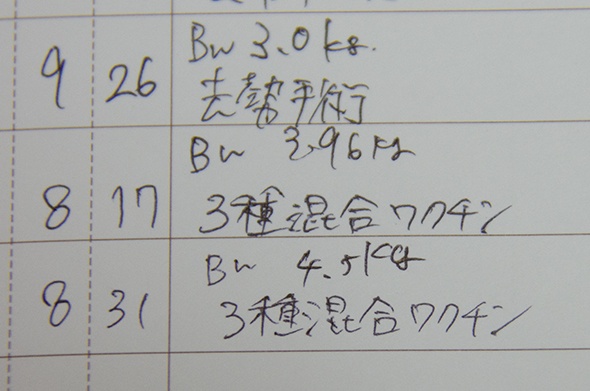 9 26 Bw 3.0kg.
去勢手術
Bw 3.96kg
8 17 3種混合ワクチン
Bw 4.5kg
8 31 3種混合ワクチン